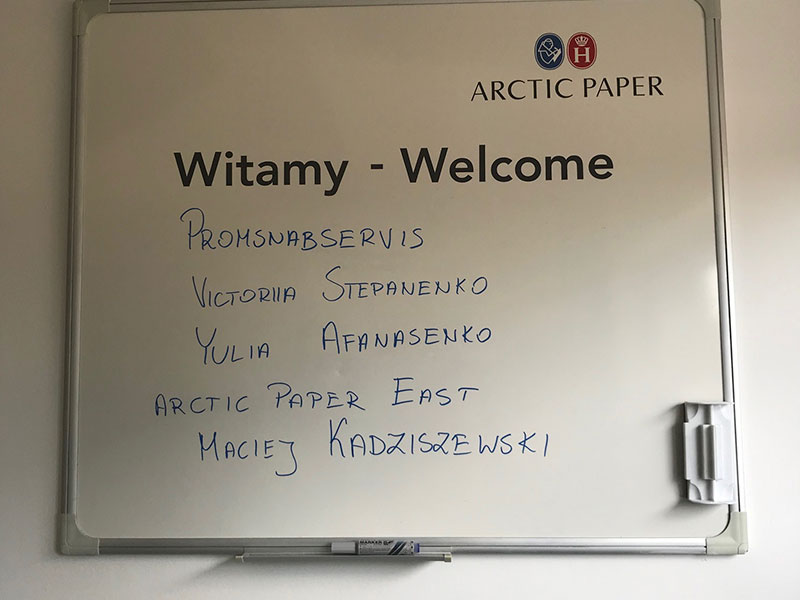 H
ARCTIC PAPER
Witamy - Welcome
PROMSNABSERVIS
VICTORIIA STEPANENKO
YULIA AFANASENKO
ARCTIC PAPER EAST
MACIEJ KADZISZEWSKI